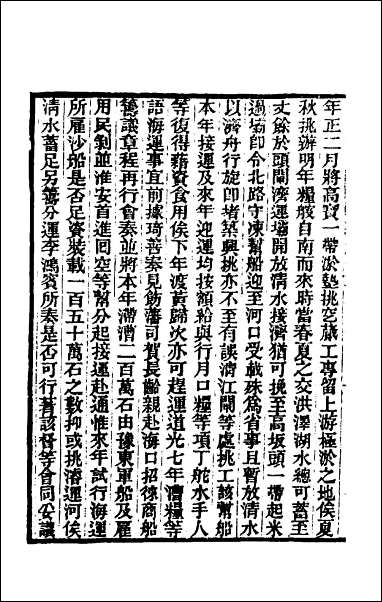 年正二月將高寶一帶淤墊挑空藏工專留上游極淤之地俟夏
秋挑辦明年糧艘自南而來時當春夏之交洪澤湖水總可蓄至
丈餘於頭閘濟運壩開放清水接濟猶可挽至高坂頭一帶起米
過壩卽令北路守凍幫船迎至河口受載殊為省事且暫放清水
以濟舟行旋卽堵築興挑亦不至有誤濟江閘等處挑工該幫船
本年接運及來年迎運均按額給與行月口糧等項丁舵水手人
等復得藉資食用俟下年渡黃歸次亦可趕運道光七年漕糧等
語海運事宜前據琦善奏見飭藩司賀長齡親赴海口招徠商船
籌議章程再行會奏並將本年滯漕二百萬石由豫東軍船及雇
用民剝並淮安首進回空等幫分起接運赴通惟來年試行海運
所雇沙船是否足資裝載一百五十萬石之數抑或挑濬運河俟
清水蓄足另籌分運李鴻賓所奏是否可行著該督等會同妥議